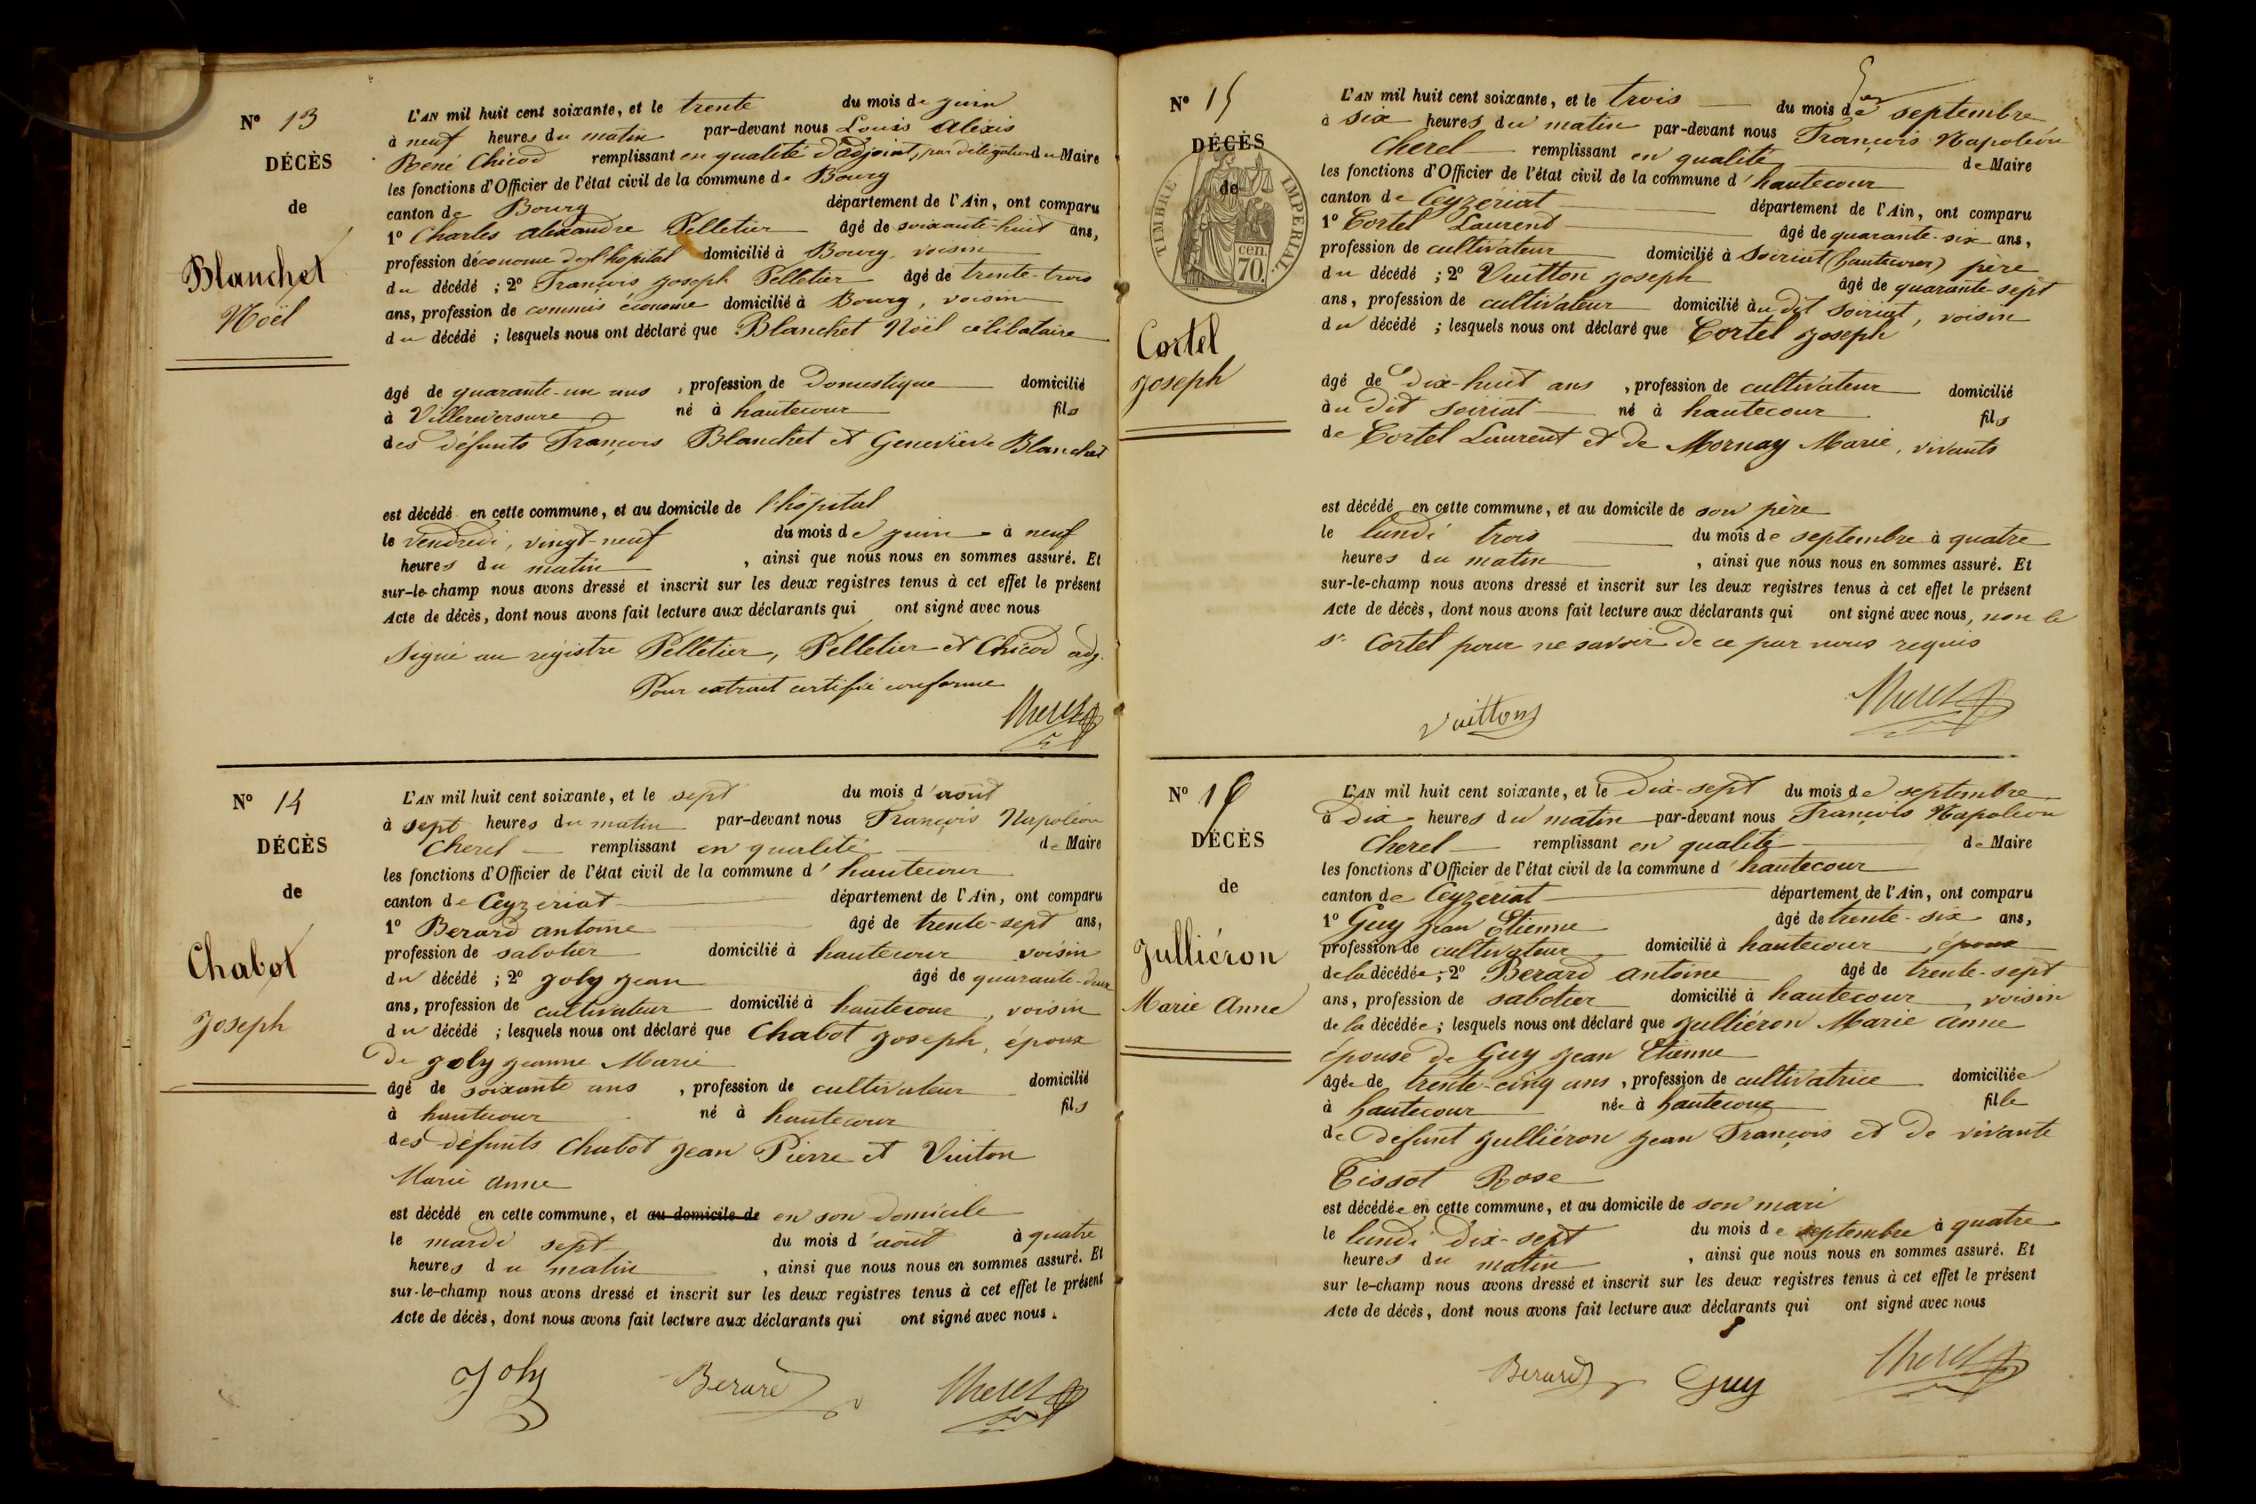 N° 13
DÉCÈS
de
Blanchet
Noël
L'AN mil huit cent soixante, et le trente du mois de juin
à neuf heures du matin par-devant nous Louis Alexis
René Chicod remplissant en qualité d'adjoint, par délégation du Maire
les fonctions d'Officier de l'état civil de la commune de Bourg
canton de Bourg département de l'Ain, ont comparu
1° Charles Alexandre Pelletier âgé de soixante-huit ans,
profession d'économe de l'hôpital domicilié à Bourg, voisin
du décédé ; 2° François Joseph Pelletier âgé de trente-trois
ans, profession de commis économe domicilié à Bourg, voisin
du décédé ; lesquels nous ont déclaré que Blanchet Noël célibataire
âgé de quarante-un ans, profession de Domestique domicilié
à Villereversure né à hautecour fils
des défunts François Blanchet et Geneviève Blanchet
est décédé en cette commune, et au domicile de l'hôpital
le vendredi, vingt-neuf du mois de juin à neuf
heures du matin, ainsi que nous nous en sommes assuré. Et
sur-le-champ nous avons dressé et inscrit sur les deux registres tenus à cet effet le présent
Acte de décès, dont nous avons fait lecture aux déclarants qui ont signé avec nous
Signé au régistre Pelletier, Pelletier et Chicod adj.
Pour extrait certifié conforme
Cherel
N° 14
DÉCÈS
de
Chabot
Joseph
L'AN mil huit cent soixante, et le sept du mois d'août
à sept heures du matin par-devant nous François Napoléon
Cherel remplissant en qualité de Maire
les fonctions d'Officier de l'état civil de la commune d'hautecour
canton de Ceyzériat département de l'Ain, ont comparu
1° Berard antoine âgé de trente-sept ans,
profession de sabotier domicilié à hautecour voisin
du décédé ; 2° Joly Jean âgé de quarante-deux
ans, profession de cultivateur domicilié à hautecour, voisin
du décédé ; lesquels nous ont déclaré que Chabot Joseph, époux
de Joly Jeanne Marie
âgé de soixante ans, profession de cultivateur domicilié
à hautecour né à hautecour fils
des défunts Chabot Jean Pierre et Vuiton
Marie Anne
est décédé en cette commune, et au domicile de en son domicile
le mardi sept du mois d'août à quatre
heures du matin, ainsi que nous nous en sommes assuré. Et
sur-le-champ nous avons dressé et inscrit sur les deux registres tenus à cet effet le présent
Acte de décès, dont nous avons fait lecture aux déclarants qui ont signé avec nous.
Joly Berard Cherel
N° 15
DÉCÈS
de
TIMBRE IMPÉRIAL
cen.
70.
Cortel
Joseph
L'AN mil huit cent soixante, et le trois du mois de septembre
à six heures du matin par-devant nous François Napoléon
Cherel remplissant en qualité de Maire
les fonctions d'Officier de l'état civil de la commune d'hautecour
canton de Ceyzériat département de l'Ain, ont comparu
1° Cortel Laurend âgé de quarante-six ans,
profession de cultivateur domicilié à Soiriat (hautecour) père
du décédé ; 2° Vuitton Joseph âgé de quarante-sept
ans, profession de cultivateur domicilié au dit Soiriat, voisin
du décédé ; lesquels nous ont déclaré que Cortel Joseph
âgé de dix-huit ans, profession de cultivateur domicilié
au dit Soiriat né à hautecour fils
de Cortel Laurent et de Mornay Marie, vivants
est décédé en cette commune, et au domicile de son père
le lundi trois du mois de septembre à quatre
heures du matin, ainsi que nous nous en sommes assuré. Et
sur-le-champ nous avons dressé et inscrit sur les deux registres tenus à cet effet le présent
Acte de décès, dont nous avons fait lecture aux déclarants qui ont signé avec nous, non le
Sr Cortel pour ne savoir de ce par nous requis
Vuitton Cherel
N° 16
DÉCÈS
de
Julliéron
Marie Anne
L'AN mil huit cent soixante, et le dix-sept du mois de septembre
à dix heures du matin par-devant nous François Napoléon
Cherel remplissant en qualité de Maire
les fonctions d'Officier de l'état civil de la commune d'hautecour
canton de Ceyzériat département de l'Ain, ont comparu
1° Guy Jean Etienne âgé de trente-six ans,
profession de cultivateur domicilié à hautecour, époux
de la décédée ; 2° Berard antoine âgé de trente-sept
ans, profession de sabotier domicilié à hautecour, voisin
de la décédée ; lesquels nous ont déclaré que Julliéron Marie Anne
épouse de Guy Jean Etienne
âgée de trente-cinq ans, profession de cultivatrice domiciliée
à hautecour née à hautecour fille
de défunt Julliéron Jean François et de vivante
Tissot Rose
est décédée en cette commune, et au domicile de son mari
le lundi dix-sept du mois de septembre à quatre
heures du matin, ainsi que nous nous en sommes assuré. Et
sur le-champ nous avons dressé et inscrit sur les deux registres tenus à cet effet le présent
Acte de décès, dont nous avons fait lecture aux déclarants qui ont signé avec nous
Berard Guy Cherel